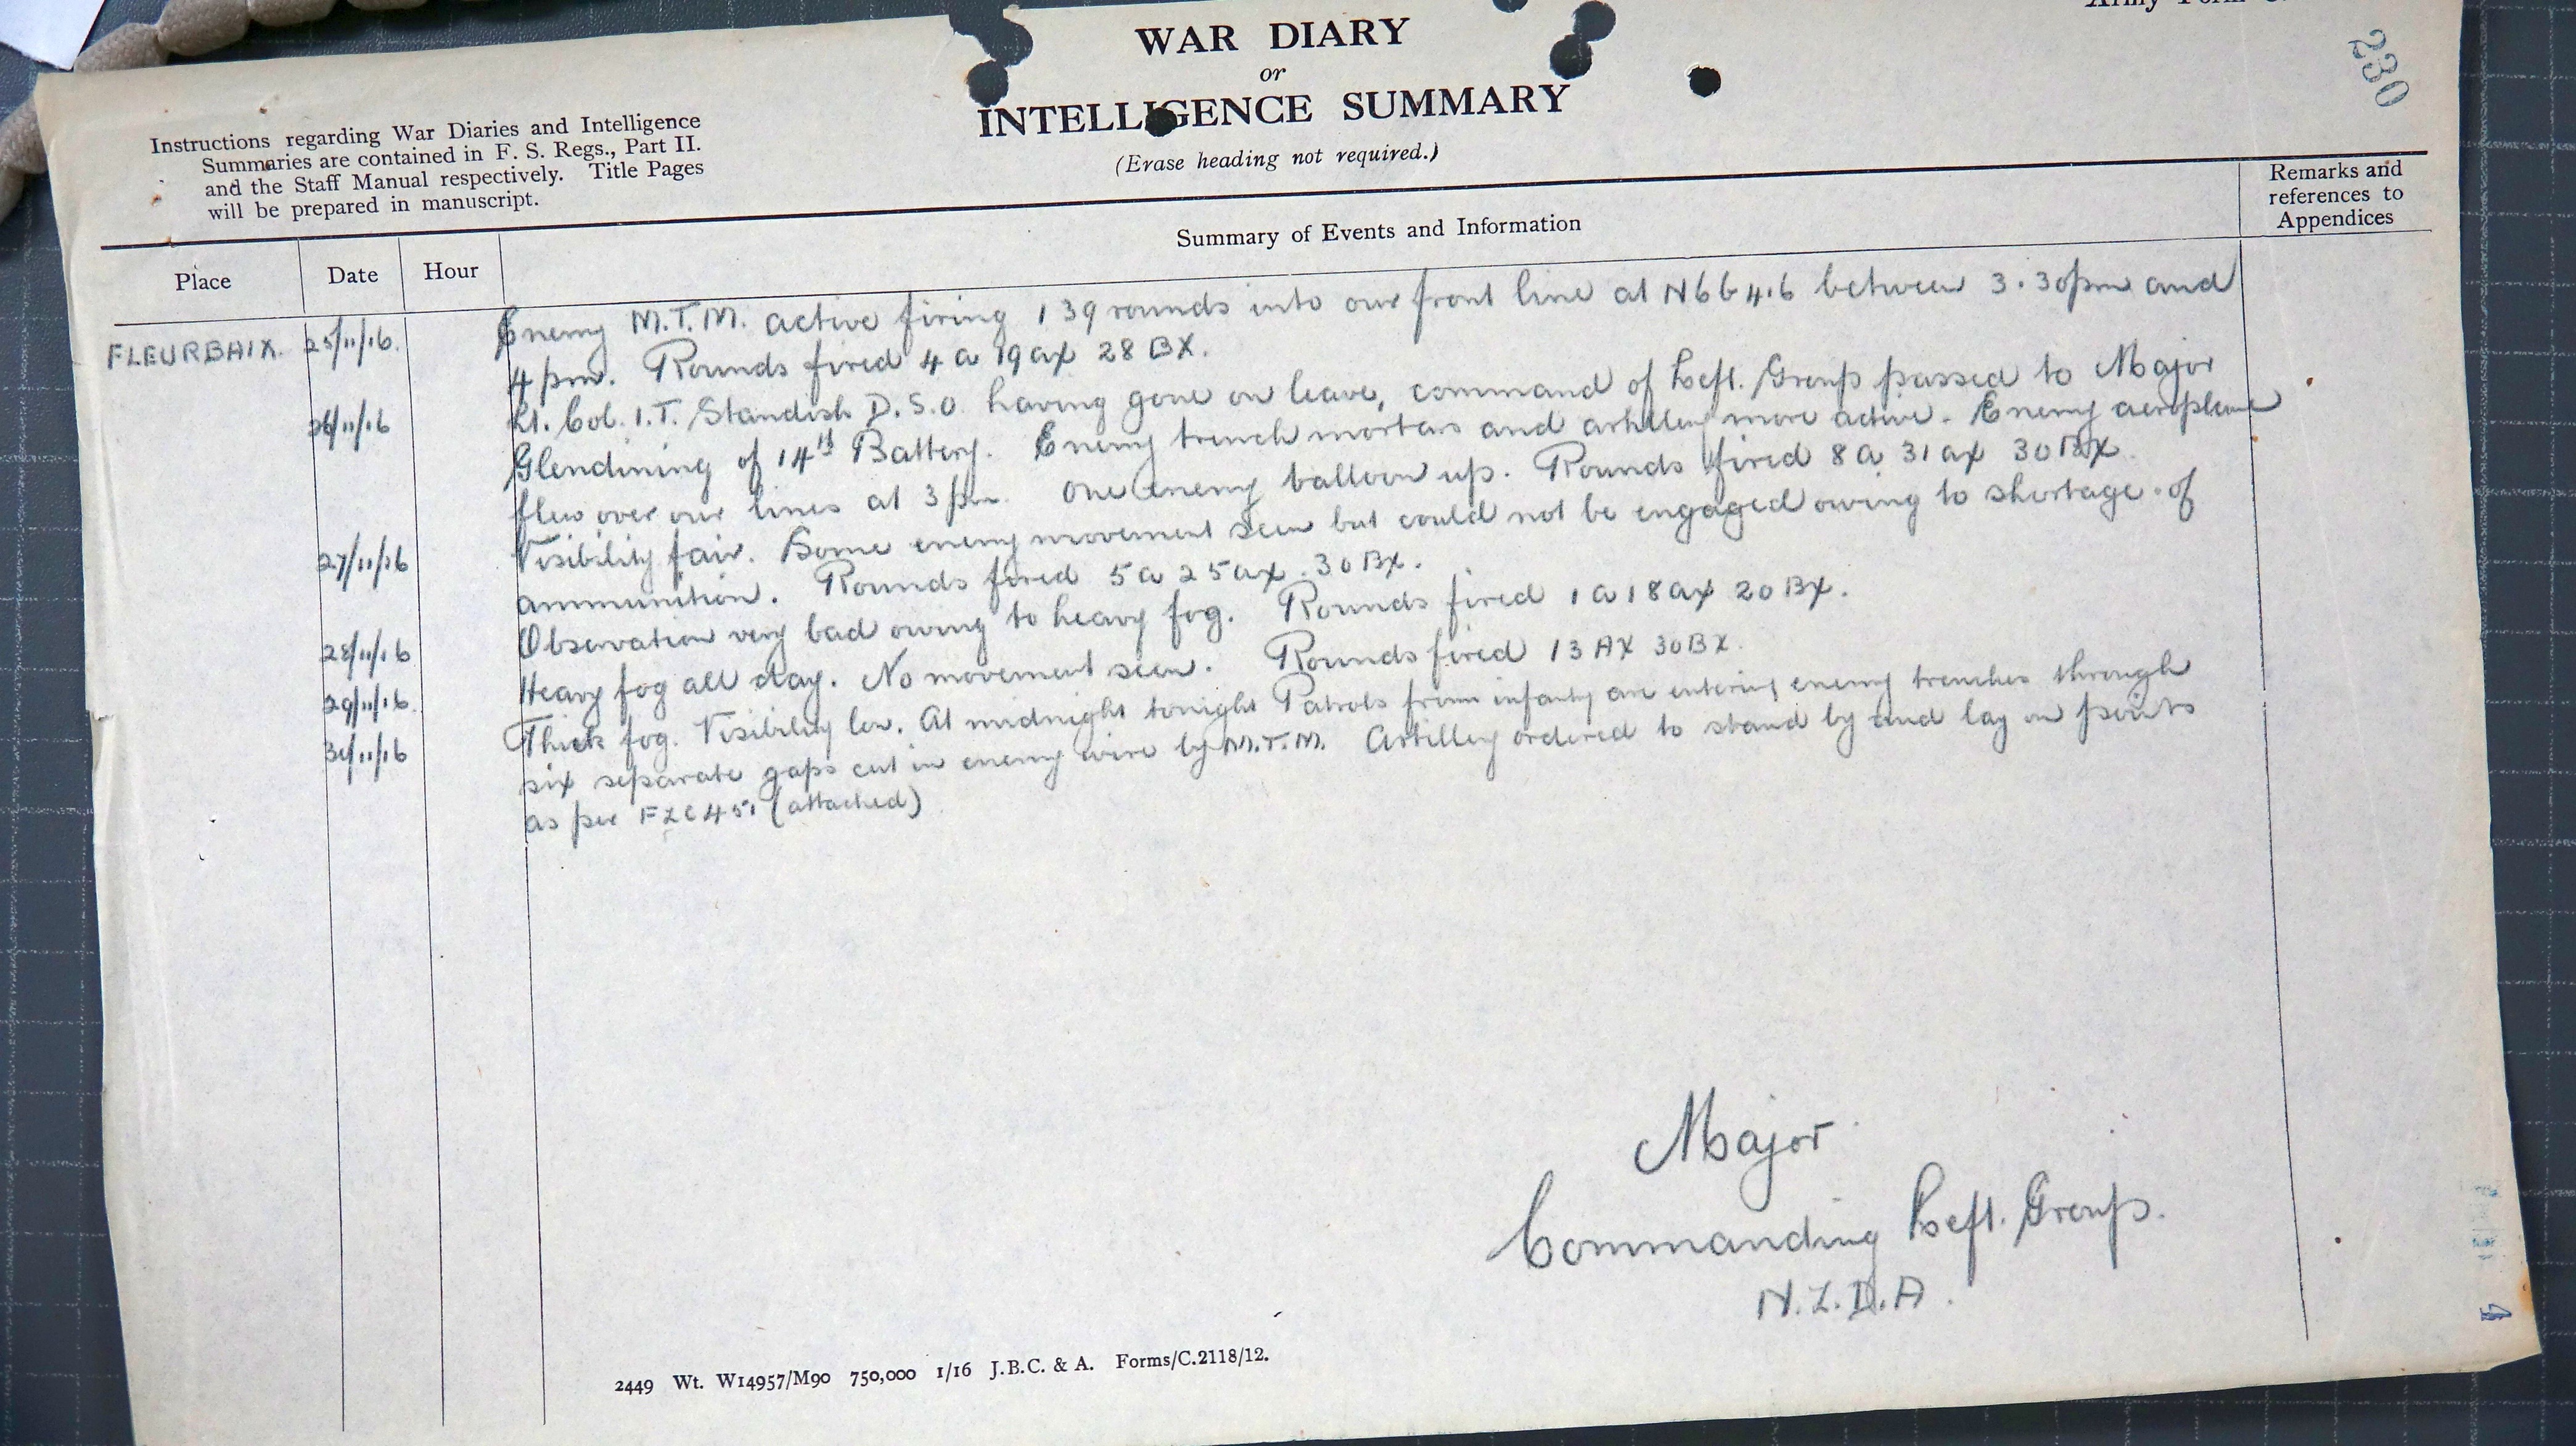 WAR DIARY
or
INTELLIGENCE SUMMARY
(Erase heading not required.)
Army Form
230
Instructions regarding War Diaries and Intelligence
Summaries are contained in F. S. Regs., Part II.
and the Staff Manual respectively. Title Pages
will be prepared in manuscript.
Place
Date
Hour
Summary of Events and Information
Remarks and
references to
Appendices
FLEURBAIX. 25/11/16. Enemy M.T.M. active firing 139 rounds into our front line at N6b4.6 between 3.30pm and
4 pm. Rounds fired 4 a 19 ax 28 BX.
26/11/16 Lt. Col. I.T. Standish D.S.O. having gone on leave, command of Left. Group passed to Major
Glendining of 14th Battery. Enemy trench mortars and artillery more active. Enemy aeroplane
flew over our lines at 3 pm. One enemy balloon up. Rounds fired 8 a 31 ax 30 BX.
27/11/16 Visibility fair. Some enemy movement seen but could not be engaged owing to shortage of
ammunition. Rounds fired 5 a 25 ax. 30 BX.
28/11/16 Observation very bad owing to heavy fog. Rounds fired 1 a 18 ax 20 BX.
29/11/16. Heavy fog all day. No movement seen. Rounds fired 13 AX 30 BX.
/11/16 Thick fog. Visibility low. At midnight tonight Patrols from infantry are entering enemy trenches through
six separate gaps cut in enemy wire by M.T.M. Artillery ordered to stand by and lay on points
as per FZC451 (attached)
Major
Commanding Left. Group.
N.Z.D.A.
4
2449 Wt. W14957/M90 750,000 1/16 J.B.C. & A. Forms/C.2118/12.